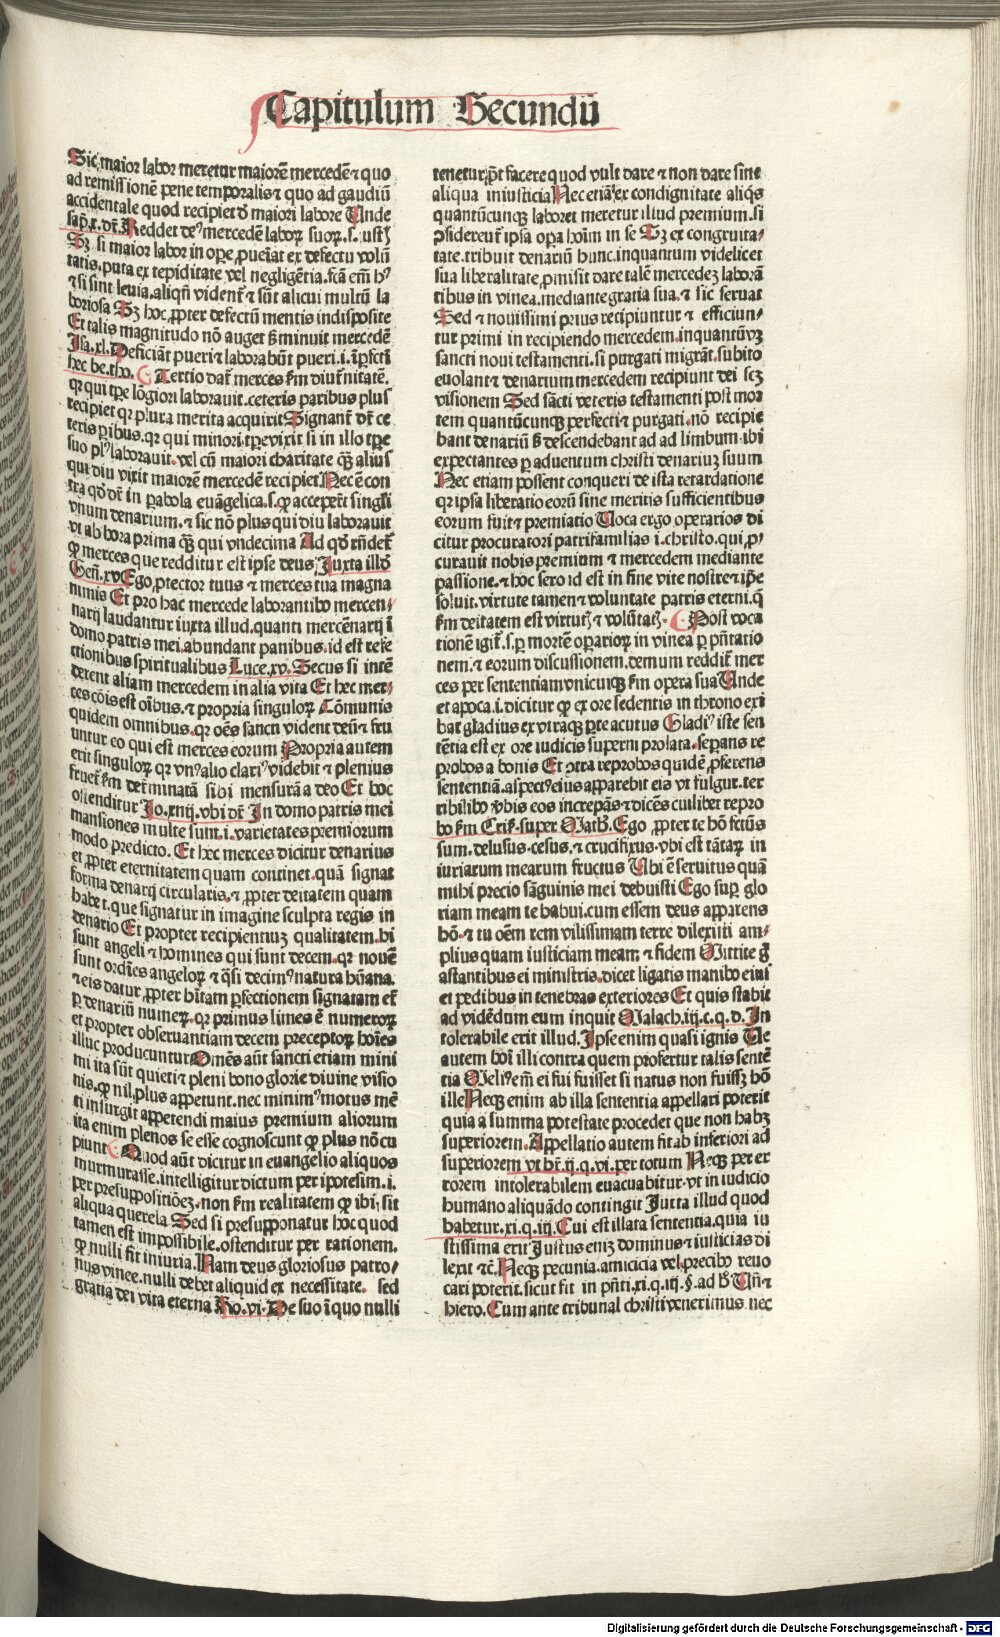 Capitulum Secundū
Sic maior labor meretur maiorē mercedē ⁊ quo
ad remissionē pene temporalis ⁊ quo ad gaudiū
accidentale quod recipiet ꝺ maiori labore Unde
sap̄. x. dr̄. Reddet deꝰ mercedē laboꝝ suoꝝ. s. iustꝭ
Sꝫ si maior labor in oꝑe ꝓueniat ex defectu volū
tatis. puta ex tepiditate vel negligētia. scā em̄ hꝰ
⁊ si sint leuia. aliqn̄ vident̄ ⁊ sūt alicui multū la
boriosa Sꝫ hoc ꝓpter defectū mentis indisposite
Et talis magnitudo nō auget sꝫ minuit mercedē
Isa. xl. Deficiāt pueri ⁊ laborabūt pueri. i. īꝑfecti
hec be. tho. Tertio dat̄ merces ẜm diut̄nitatē.
qꝛ qui tꝑe lōgiori laborauit. ceteris paribus plus
recipiet qꝛ plura merita acquirit Signant̄ dr̄ ce
teris ꝑibus. qꝛ qui minori tꝑe vixit si in illo tꝑe
suo plꝰ laborauit. vel cū maiori charitate qꝫ alius
qui diu vixit maiorē mercedē recipiet Nec ē con
tra qd̄ dr̄ in ꝑabola euāgelica. s. ꝙ acceꝑēt singli
vnum denarium. ⁊ sic nō plus qui diu laborauit
vt ab hora prima qꝫ qui vndecima Ad qd̄ rn̄det̄
ꝙ merces que redditur est ipse deus Iuxta illd̄
Gen̄. xv Ego ꝓtector tuus ⁊ merces tua magna
nimis Et pro hac mercede laborantibꝰ mercen/
narij laudantur iuxta illud. quanti mercēnarij ī
domo patris mei. abundant panibus. id est refe
ctionibus spiritualibus Luce. xv. Secus si intē
derent aliam mercedem in alia vita Et hec mer/
ces cōis est oībus. ⁊ propria singuloꝝ Cōmunis
quidem omnibus. qꝛ oēs sancti vident deū ⁊ fru
untur eo qui est merces eorum Propria autem
erit singuloꝝ qꝛ vnꝰ alio clariꝰ videbit ⁊ plenius
fruet̄ ẜm det̄minatā sibi mensurā a deo Et hoc
ostenditur Jo. xiiij. vbi dr̄ In domo patris mei
mansiones multe sunt. i. varietates premiorum
modo predicto. Et hec merces dicitur denarius
et ꝓpter eternitatem quam continet. quā signat
forma denarij circularis. ⁊ ꝓpter deitatem quam
habet. que signatur in imagine sculpta regis in
denario Et propter recipientiuꝫ qualitatem. hi
sunt angeli ⁊ homines qui sunt decem. qꝛ nouē
sunt ordīes angeloꝝ ⁊ q̄si decimꝰ natura hūana.
⁊ eis datur ꝓpter hn̄tam ꝑfectionem signatam et̄
ꝑ denariū numeꝝ. qꝛ primus limes ē numeroꝝ
et propter obseruantiam decem preceptoꝝ hoīes
illuc producuntur Omēs aūt sancti etiam mini
mi ita sūt quieti ⁊ pleni bono glorie diuine visio
nis. ꝙ nil plus appetunt. nec minimꝰ motus mē
ti insurgit appetendi maius premium aliorum
ita enim plenos se esse cognoscunt ꝙ plus nō cu
piunt Quod aūt dicitur in euangelio aliquos
murmurasse. intelligitur dictum per ipotesim. i.
per presuppositiōeꝫ. non ẜm realitatem ꝙ ibi sit
aliqua querela Sed si presupponatur hoc quod
tamen est impossibile. ostenditur per rationem.
ꝙ nulli fit iniuria. Nam deus gloriosus patro/
nus vinee. nulli debet aliquid ex necessitate. sed
gratia dei vita eterna Ro. vi. De suo īquo nulli
tenetur. pōt facere quod vult dare ⁊ non dare sine
aliqua iniusticia Nec eniꝫ ex condignitate aliqͥs
quantūcunqꝫ laboret meretur illud premium. si
ꝯsidereut̄ ipsa oꝑa hoīm in se Sꝫ ex congruita/
tate. tribuit denariū hunc. inquantum videlicet
sua liberalitate ꝓmisit dare talē mercedeꝫ laborā
tibus in vinea. mediante gratia sua. ⁊ sic seruat
Sed ⁊ nouissimi prius recipiuntur ⁊ efficiun/
tur primi in recipiendo mercedem. inquantūꝫ
sancti noui testamenti. si purgati migrāt. subito
euolant ⁊ denarium mercedem recipiunt dei scꝫ
visionem Sed sācti veteris testamenti post mor
tem quantūcunqꝫ perfecti ⁊ purgati. nō recipie
bant denariū sꝫ descendebant ad ad limbum. ibi
expectantes ꝑ aduentum christi denariuꝫ suum
Nec etiam possent conqueri de ista retardatione
qꝛ ipsa liberatio eorū sine meritis sufficientibus
eorum fuit ⁊ premiatio Uoca ergo operarios di
citur procuratori patrisfamilias i. christo. qui ꝓ
curauit nobis premium ⁊ mercedem mediante
passione. ⁊ hoc sero id est in fine vite nostre ⁊ ip̄e
soluit. virtute tamen ⁊ voluntate patris eterni. q̄
ẜm deitatem est virtutꝫ ⁊ volūtatꝫ. Post voca
tionē igit̄. s. ꝑ mortē operarioꝝ in vinea ꝑ pn̄tatio
nem. ⁊ eorum discussionem. demum reddit̄ mer
ces per sententiam vnicuiqꝫ ẜm opera sua Unde
et apoca. i. dicitur ꝙ ex ore sedentis in throno exi
bat gladius ex vtraqꝫ ꝑte acutus Gladiꝰ iste sen
tētia est ex ore iudicis superni prolata. seꝑans re
probos a bonis Et ꝯtra reprobos quidē ꝓferens
sententiā. aspectꝰ eius apparebit eis vt fulgur. ter
ribilibꝰ v̄bis eos increpās ⁊ dicēs cuilibet repro
bo ẜm Crisꝰ. super Math. Ego ꝓpter te hō fctūs
sum. delusus. cesus. ⁊ crucifixus. vbi est tātaꝝ in
iuriarum mearum fructus Ubi ē seruitus quā
mihi precio sāguinis mei debuisti Ego suꝑ glo
riam meam te habui. cum essem deus apparens
hō. ⁊ tu oēm rem vilissimam terre dilexisti am/
plius quam iusticiam meam ⁊ fidem Mittite g̊
astantibus ei ministris. dicet ligatis manibꝰ eius
et pedibus in tenebras exteriores Et quis stabit
ad vidēdum eum inquit Malach. iij. c. q. d. In
tolerabile erit illud. Ipse enim quasi ignis Ue
autem hoī illi contra quem profertur talis sentē
tia Meliꝰ em̄ ei fui fuisset si natus non fuissꝫ hō
ille Neqꝫ enim ab illa sententia appellari poterit
quia a summa potestate procedet que non habꝫ
superiorem. Appellatio autem fit ab inferiori ad
superiorem vt hr̄. ij. q. vi. per totum Neqꝫ per er
rorem intolerabilem euacuabitur. vt in iudicio
humano aliquādo contingit Iuxta illud quod
habetur. xi. q. iij. Cui est illata sententia. quia iu
stissima erit Iustus eniꝫ dominus ⁊ iusticias di
lexit ⁊c̄. Neqꝫ pecunia. amicicia vel precibꝰ reuo
cari poterit. sicut fit in pn̄ti. xi. q. iij. §. ad hͦ Un̄ ⁊
hiero. Cum ante tribunal christi venerimus. nec
Digitalisierung gefördert durch die Deutsche Forschungsgemeinschaft - DFG